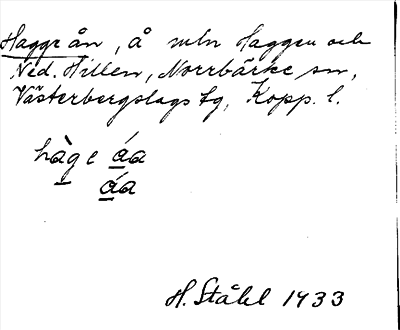 Haggeån, å mln Haggen och
Ned. Hillen, Norrbärke sn,
Västerbergslags tg, Kopp. l.
hàge áa
áa
H. Ståhl 1933